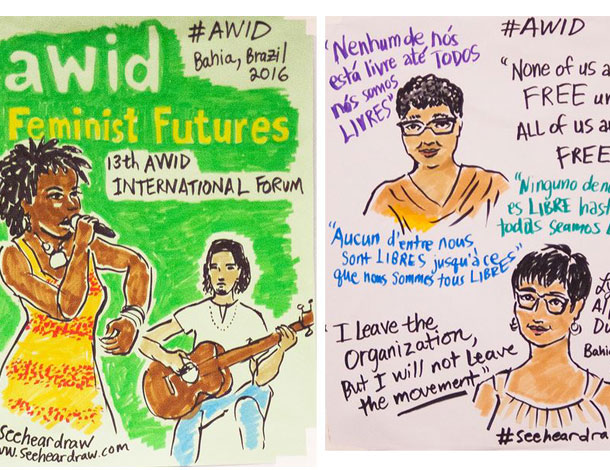 awid
#AWID
Bahia, Brazil
2016
Feminist Futures
13th AWID
INTERNATIONAL FORUM
#seeheardraw
www.seeheardraw.com
#AWID
"Nenhum de nós
está livre até TODOS
nós somos
LIVRES"
"None of us a
FREE un
ALL of us ar
FREE
"Ninguno de no
es LIBRE hast
todas seamos L
"Aucun d'entre nous
sont LIBRES jusqu'à ce
que nous sommes tous LIBRES"
L
Al
Du
Bahi
"I Leave the
Organization,
But I will not Leave
the movement"
#seeheardraw